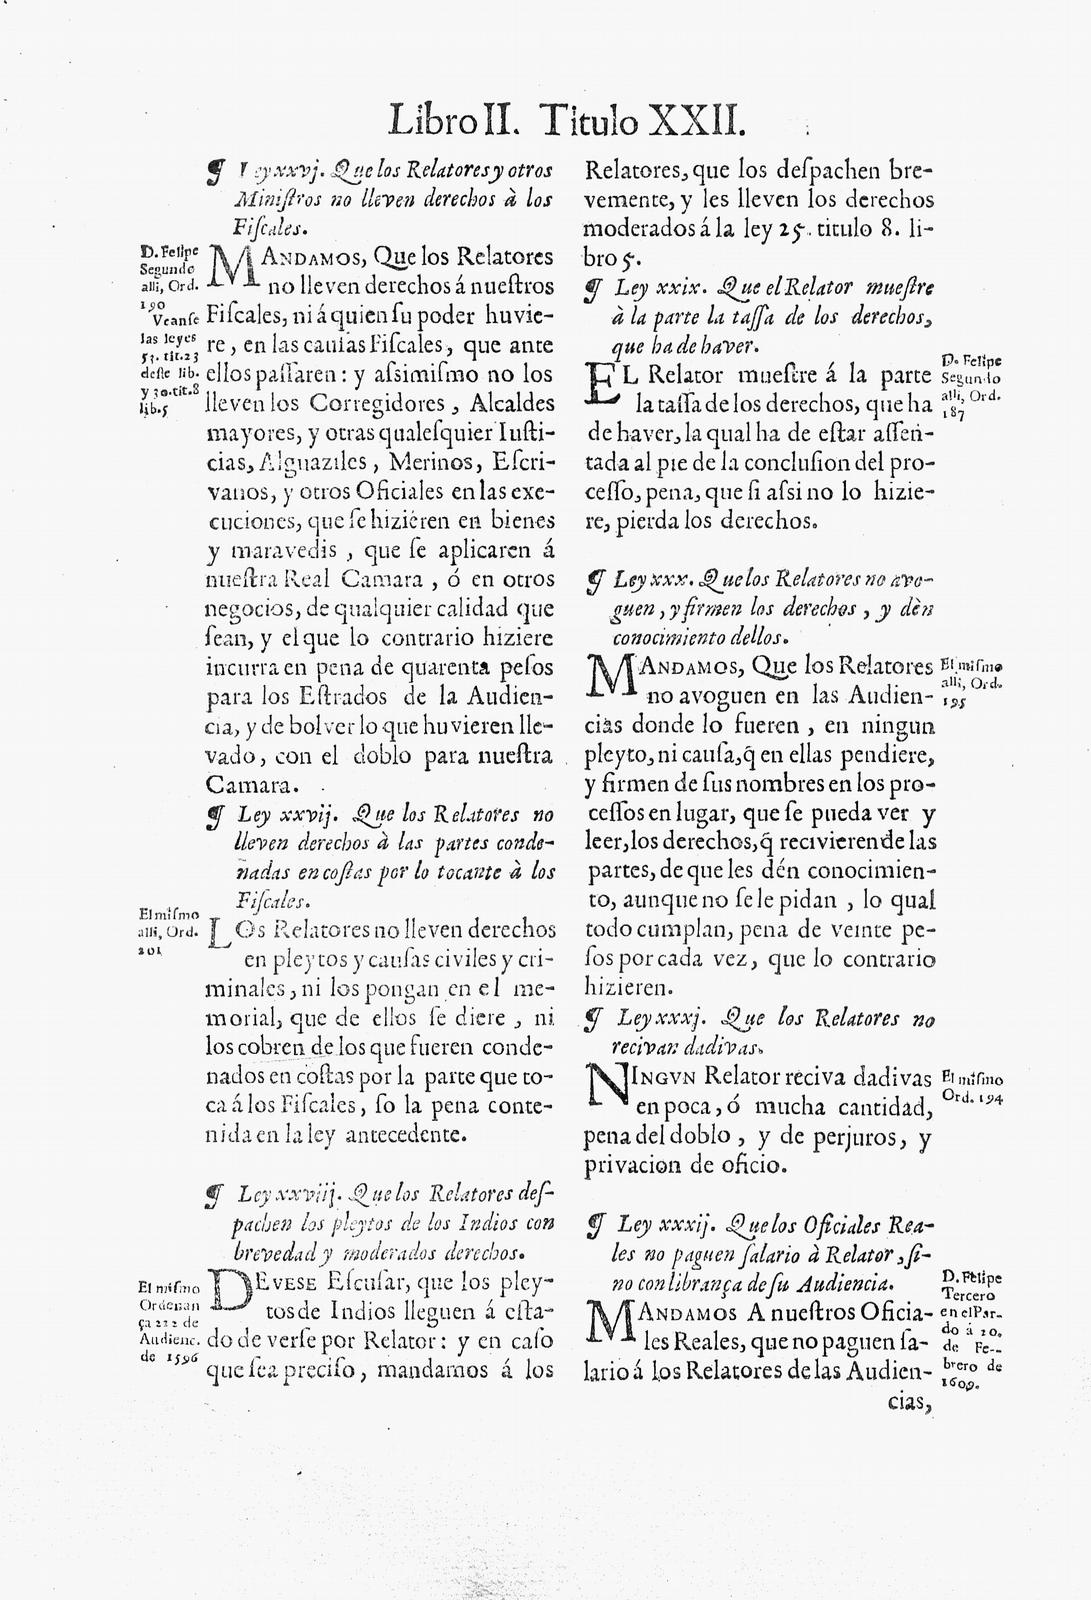 Libro II. Titulo XXII.
¶ Ley xxvj. Que los Relatores y otros
Miniſtros no lleven derechos à los
Fiſcales.
D. Felipe
Segundo
alli, Ord.
190
Veanſe
las leyes
53. tit. 23
deſte lib.
y 30. tit. 8
lib. 5
MANDAMOS, Que los Relatores
no lleven derechos á nueſtros
Fiſcales, ni á quien ſu poder huvie-
re, en las cauſas Fiſcales, que ante
ellos paſſaren: y aſsimiſmo no los
lleven los Corregidores, Alcaldes
mayores, y otras qualeſquier Iuſti-
cias, Alguaziles, Merinos, Eſcri-
vanos, y otros Oficiales en las exe-
cuciones, que ſe hizieren en bienes
y maravedis, que ſe aplicaren á
nueſtra Real Camara, ó en otros
negocios, de qualquier calidad que
ſean, y el que lo contrario hiziere
incurra en pena de quarenta peſos
para los Eſtrados de la Audien-
cia, y de bolver lo que huvieren lle-
vado, con el doblo para nueſtra
Camara.
¶ Ley xxvij. Que los Relatores no
lleven derechos à las partes conde-
nadas en coſtas por lo tocante à los
Fiſcales.
El miſmo
alli, Ord.
201
LOs Relatores no lleven derechos
en pleytos y cauſas civiles y cri-
minales, ni los pongan en el me-
morial, que de ellos ſe diere, ni
los cobren de los que fueren conde-
nados en coſtas por la parte que to-
ca á los Fiſcales, ſo la pena conte-
nida en la ley antecedente.
¶ Ley xxviij. Que los Relatores deſ-
pachen los pleytos de los Indios con
brevedad y moderados derechos.
El miſmo
Ordenan
ça 222 de
Audienc.
de 1596
DEVESE Eſcuſar, que los pley-
tos de Indios lleguen á eſta-
do de verſe por Relator: y en caſo
que ſea preciſo, mandamos á los
Relatores, que los deſpachen bre-
vemente, y les lleven los derechos
moderados á la ley 25. titulo 8. li-
bro 5.
¶ Ley xxix. Que el Relator mueſtre
à la parte la taſſa de los derechos,
que ha de haver.
D. Felipe
Segundo
alli, Ord.
187
EL Relator mueſtre á la parte
la taſſa de los derechos, que ha
de haver, la qual ha de eſtar aſſen-
tada al pie de la concluſion del pro-
ceſſo, pena, que ſi aſsi no lo hizie-
re, pierda los derechos.
¶ Ley xxx. Que los Relatores no avo-
guen, y firmen los derechos, y dèn
conocimiento dellos.
El miſmo
alli, Ord.
195
MANDAMOS, Que los Relatores
no avoguen en las Audien-
cias donde lo fueren, en ningun
pleyto, ni cauſa, q̃ en ellas pendiere,
y firmen de ſus nombres en los pro-
ceſſos en lugar, que ſe pueda ver y
leer, los derechos, q̃ recivieren de las
partes, de que les dén conocimien-
to, aunque no ſe le pidan, lo qual
todo cumplan, pena de veinte pe-
ſos por cada vez, que lo contrario
hizieren.
¶ Ley xxxj. Que los Relatores no
recivan dadivas.
El miſmo
Ord. 194
NINGVN Relator reciva dadivas
en poca, ó mucha cantidad,
pena del doblo, y de perjuros, y
privacion de oficio.
¶ Ley xxxij. Que los Oficiales Rea-
les no paguen ſalario à Relator, ſi-
no con librança de ſu Audiencia.
D. Felipe
Tercero
en el Par-
do á 20.
de Fe-
brero de
1609.
MANDAMOS A nueſtros Oficia-
les Reales, que no paguen ſa-
lario á los Relatores de las Audien-
cias,